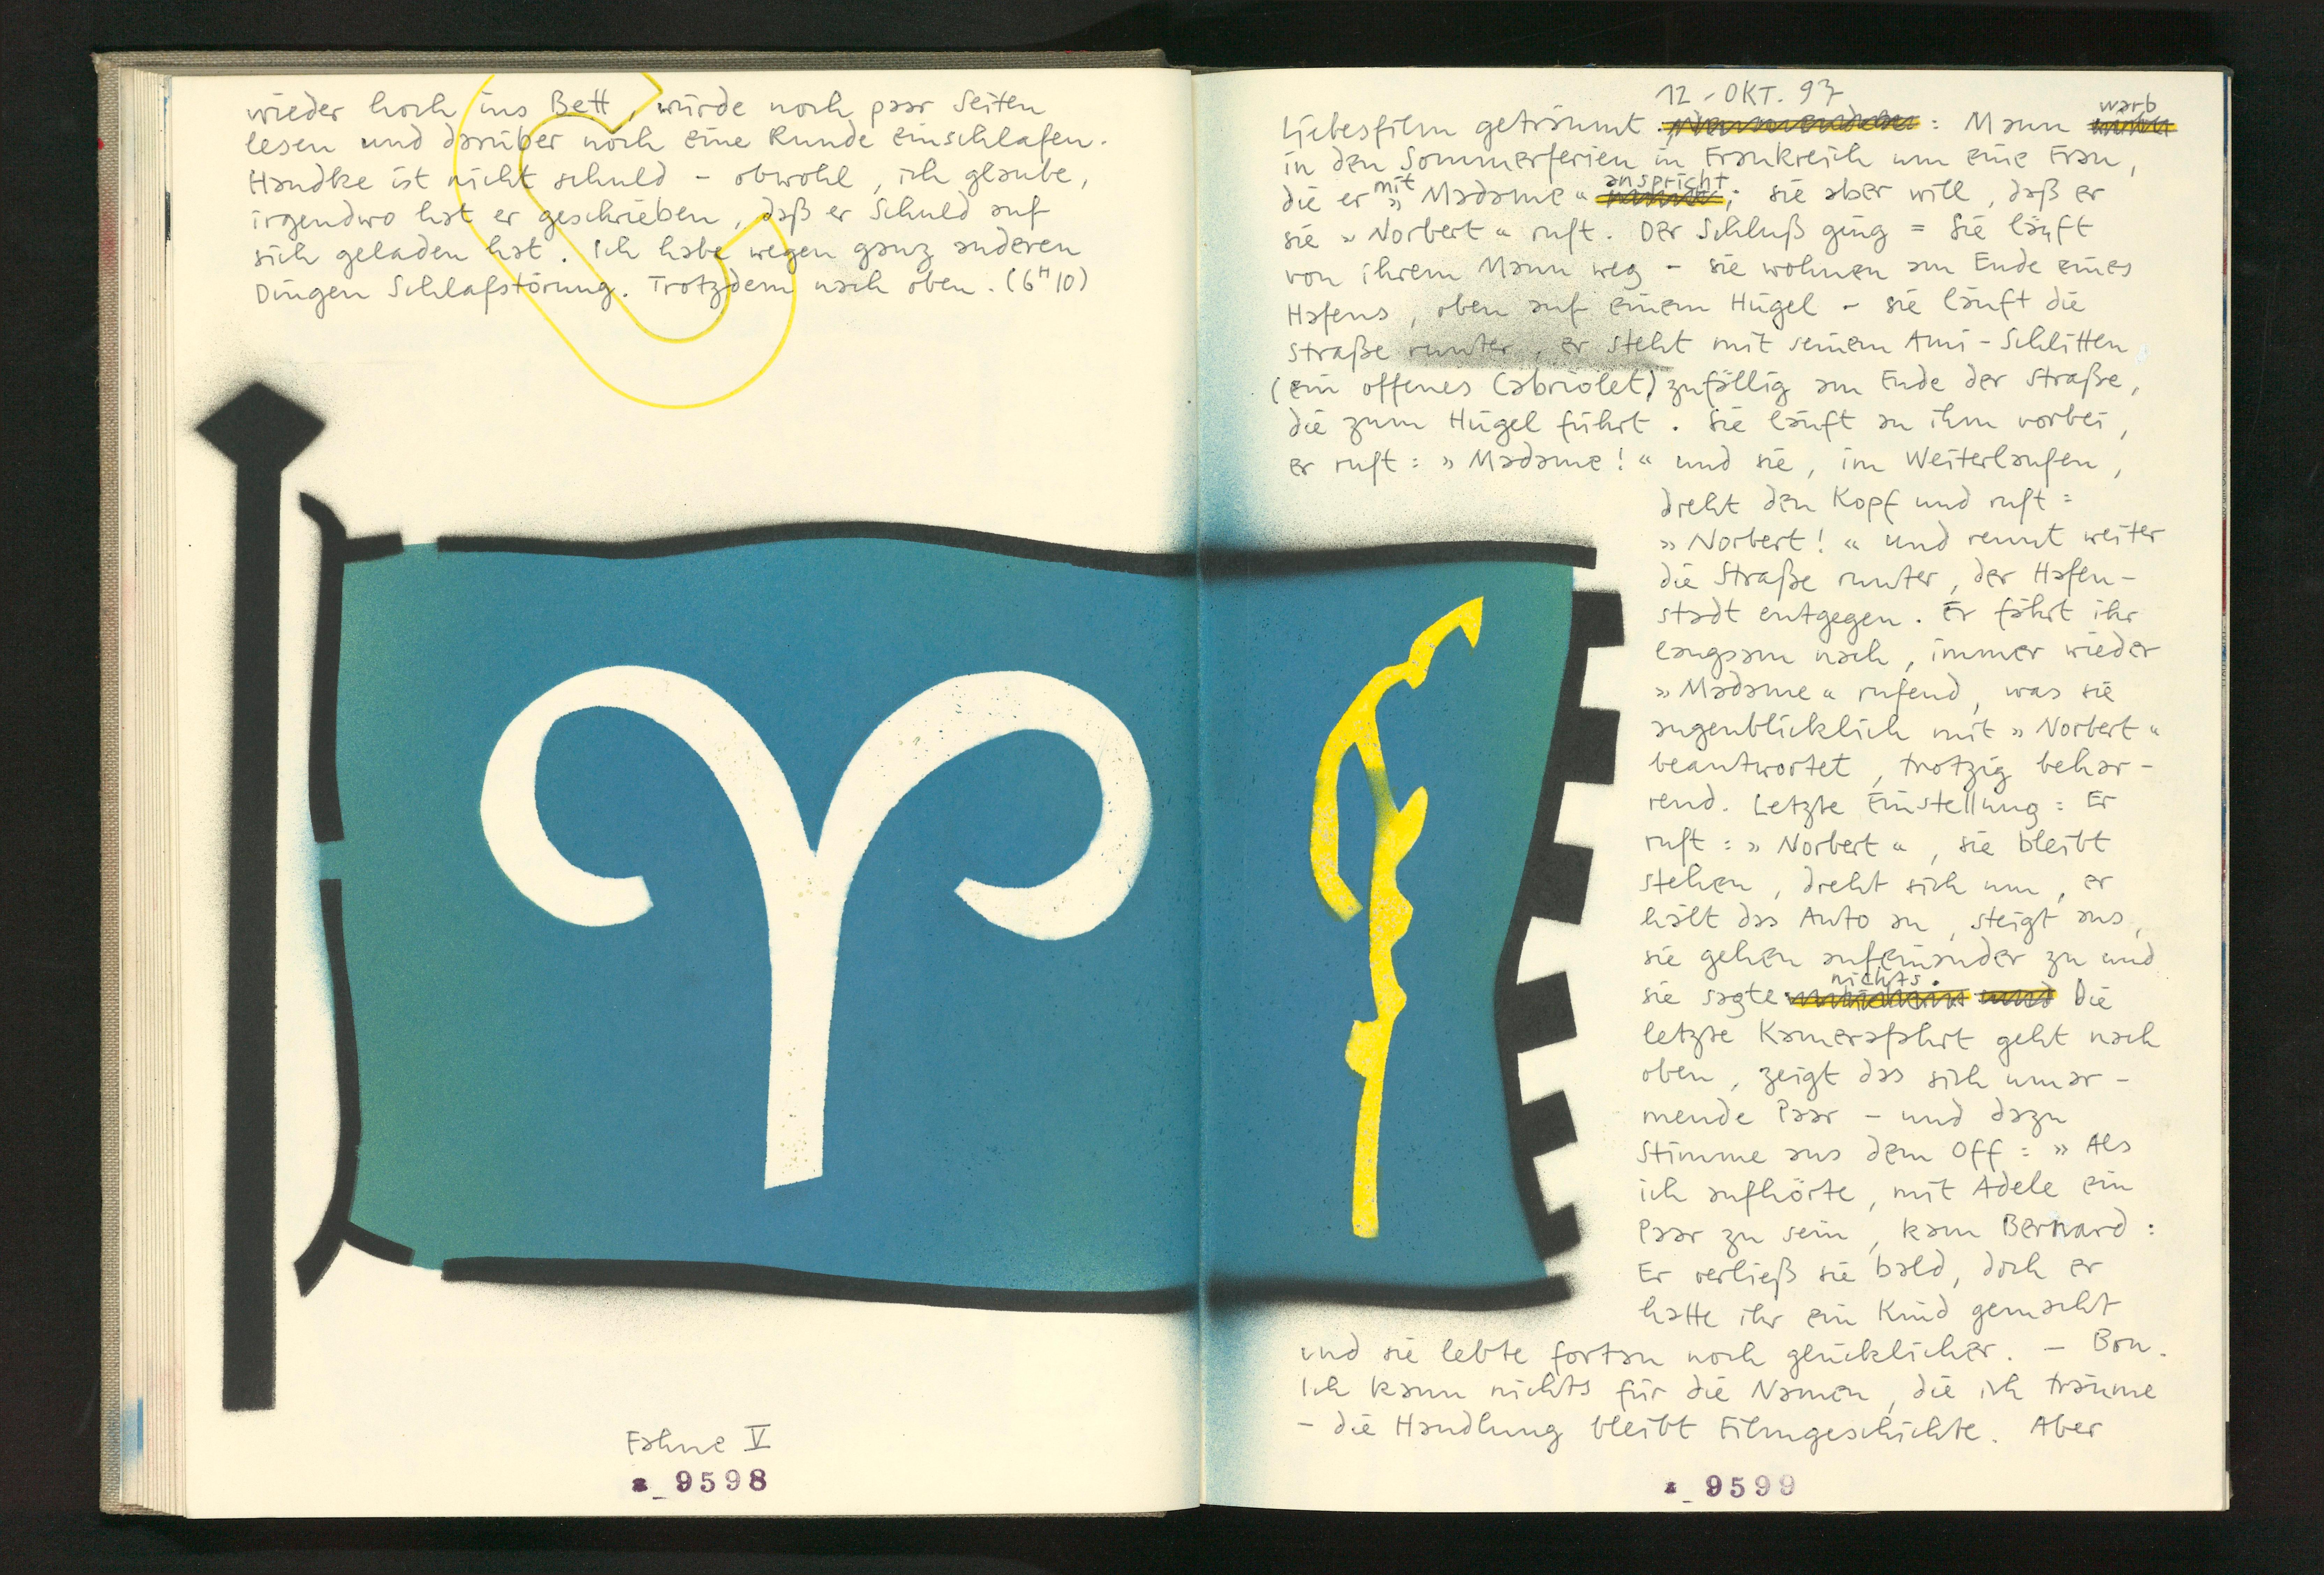 wieder hoch ins Bett, würde noch paar Seiten
lesen und darüber noch eine Runde einschlafen.
Handke ist nicht schuld – obwohl, ich glaube,
irgendwo hat er geschrieben, daß er Schuld auf
sich geladen hat. Ich habe wegen ganz anderen
Dingen Schlafstörung. Trotzdem nach oben. (6H10)
Fahne V
a_9598
12. OKT. 97
Liebesfilm geträumt : Mann warb
in den Sommerferien in Frankreich um eine Frau,
die er mit »Madame« anspricht; sie aber will, daß er
sie »Norbert« ruft. Der Schluß ging = Sie läuft
von ihrem Mann weg – sie wohnen am Ende eines
Hafens, oben auf einem Hügel – sie läuft die
Straße runter, er steht mit seinem Ami-Schlitten
(ein offenes Cabriolet) zufällig am Ende der Straße,
die zum Hügel führt. Sie läuft an ihm vorbei,
er ruft: »Madame!« und sie, im Weiterlaufen,
dreht den Kopf und ruft:
»Norbert!« und rennt weiter
die Straße runter, der Hafen-
stadt entgegen. Er fährt ihr
langsam nach, immer wieder
»Madame« rufend, was sie
augenblicklich mit »Norbert«
beantwortet, trotzig behar-
rend. Letzte Einstellung: Er
ruft: »Norbert«, sie bleibt
stehen, dreht sich um, er
hält das Auto an, steigt aus,
sie gehen aufeinander zu und
sie sagte nichts. Die
letzte Kamerafahrt geht nach
oben, zeigt das sich umar-
mende Paar – und dazu
Stimme aus dem Off: »Als
ich aufhörte, mit Adele ein
Paar zu sein, kam Bernard:
Er verließ sie bald, doch er
hatte ihr ein Kind gemacht
und sie lebte fortan noch glücklicher. – Bon.
Ich kann nichts für die Namen, die ich träume
– die Handlung bleibt Filmgeschichte. Aber
a_9599